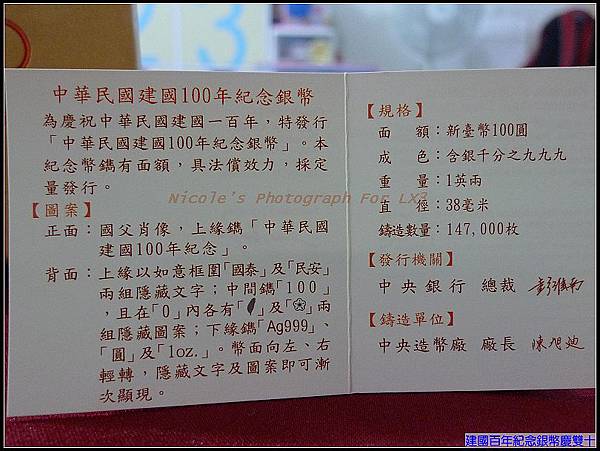 中華民國建國100年紀念銀幣
為慶祝中華民國建國一百年，特發行
「中華民國建國100年紀念銀幣」。本
紀念幣鐫有面額，具法償效力，採定
量發行。
【圖案】
正面：國父肖像，上緣鐫「中華民國
建國100年紀念」。
背面：上緣以如意框圍「國泰」及「民安」
兩組隱藏文字；中間鐫「100」
，且在「0」內各有「」及「」兩
組隱藏圖案；下緣鐫「Ag999」、
「圓」及「1oz.」。幣面向左、右
輕轉，隱藏文字及圖案即可漸
次顯現。
【規格】
面 額：新臺幣100圓
成 色：含銀千分之九九九
重 量：1英兩
直 徑：38毫米
鑄造數量：147,000枚
【發行機關】
中央銀行 總裁 彭淮南
【鑄造單位】
中央造幣廠 廠長 陳旭迪
Nicole's Photograph For LX3
建國百年紀念銀幣慶雙十